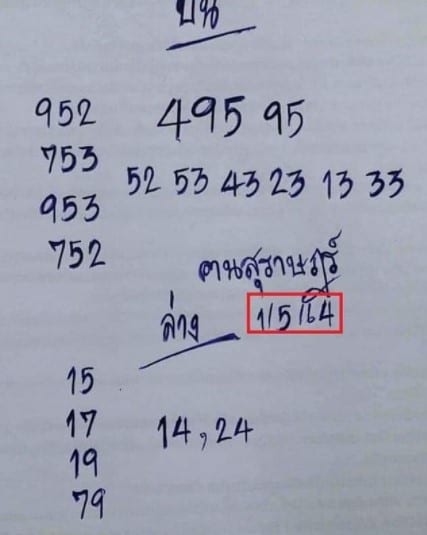 บน
952 495 95
753
52 53 43 23 13 33
953
752
คนสุราษฎร์
ล่าง 1/5/64
15
17 14,24
19
79